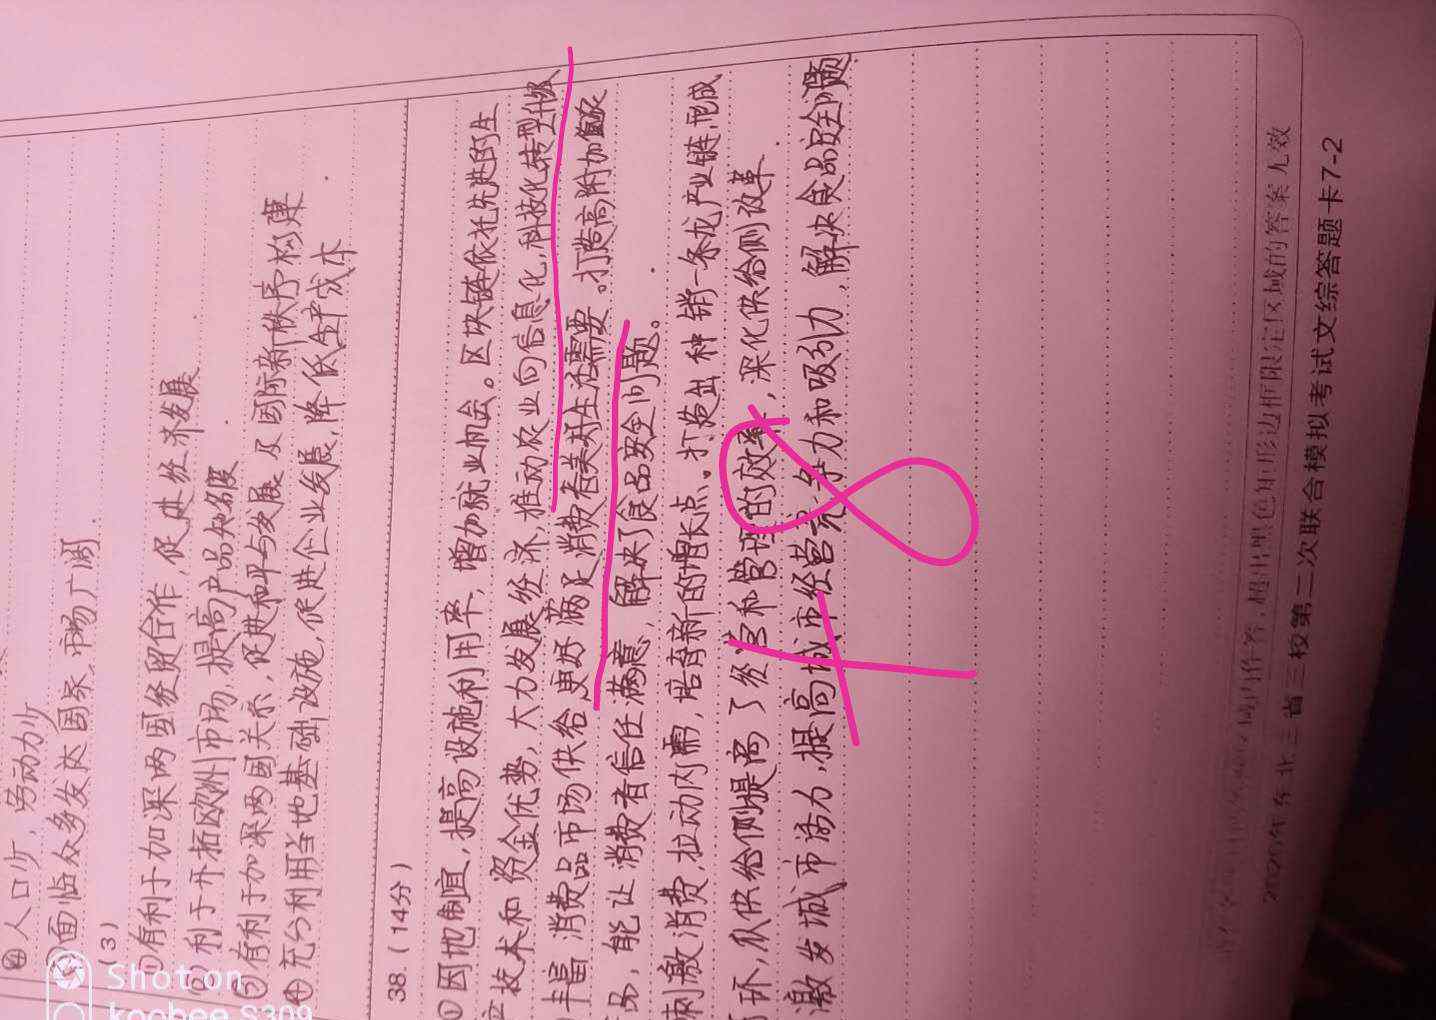 ④人口少，劳动力少
⑤面临众多发达国家，市场广阔.
(3)
①有利于加深两国经贸合作，促进经济发展
②利于开拓欧洲市场，提高产品知名度
③有利于加深两国关系，促进和平与发展及国际新秩序构建
④充分利用当地基础设施，促进企业发展，降低生产成本
38.(14分)
①因地制宜，提高设施利用率，增加就业机会。区块链依托先进的生
产技术和资金优势，大力发展经济，推动农业向信息化，科技化转型升级
丰富消费品市场供给更好满足消费者美好生活需要。打造高附加值农
品，能让消费者信任满意，解决了食品安全问题。
刺激消费，拉动内需，培育新的增长点。打造出种销一条龙产业链，形成
环，从供给侧提高了经营和管理的效率，深化供给侧改革.
激发城市活力，提高城市经营竞争力和吸引力，解决食品安全问题
84
2020年东北三省三校第二次联合模拟考试文综答题卡7-2
Shot on
koobee S309